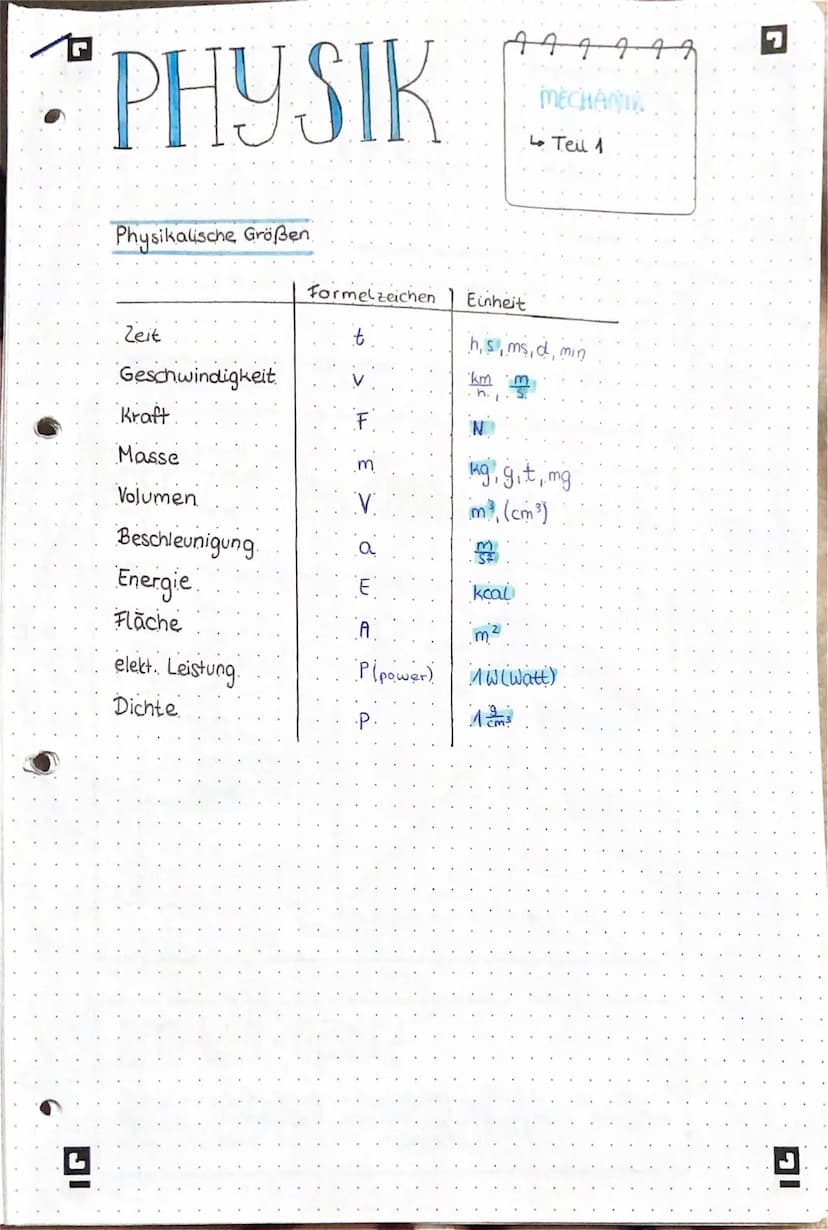 PHYSIK
MECHANIK
↳ Teil 1
Physikalische Größen
Formelzeichen Einheit
Zeit t h, s, ms, d, min
Geschwindigkeit v km/h, m/s
Kraft F N
Masse m kg, g, t, mg
Volumen V m³, (cm³)
Beschleunigung a m/s²
Energie E kcal
Fläche A m²
elekt. Leistung P (power) 1 W (Watt)
Dichte P 1 g/cm³